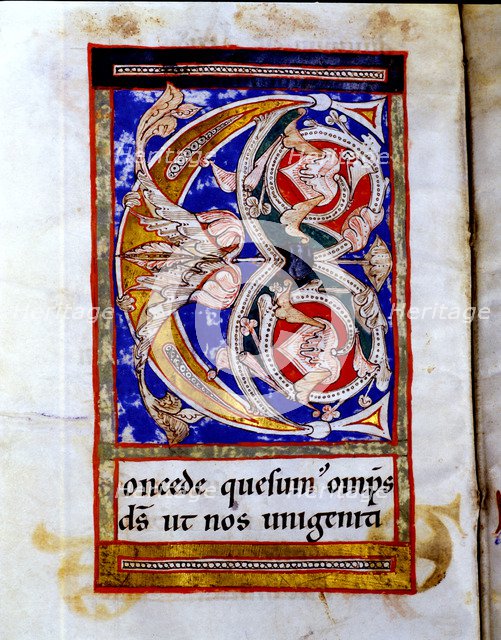 C
oncede quesum᷒ om̅p̅s
d̅s̅ ut nos unigenita
Heritage
Heritage
Heritage
Heritage